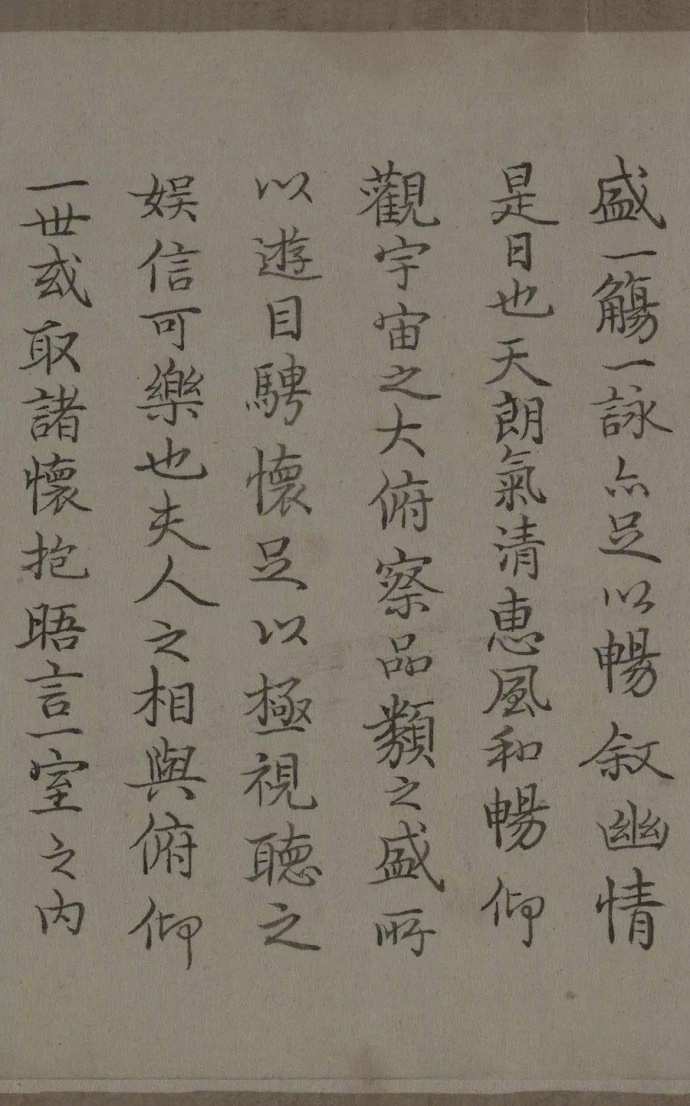 盛一觴一詠亦足以暢叙幽情
是日也天朗氣清惠風和暢仰
觀宇宙之大俯察品類之盛所
以遊目騁懷足以極視聽之
娛信可樂也夫人之相與俯仰
一世或取諸懷抱晤言一室之内